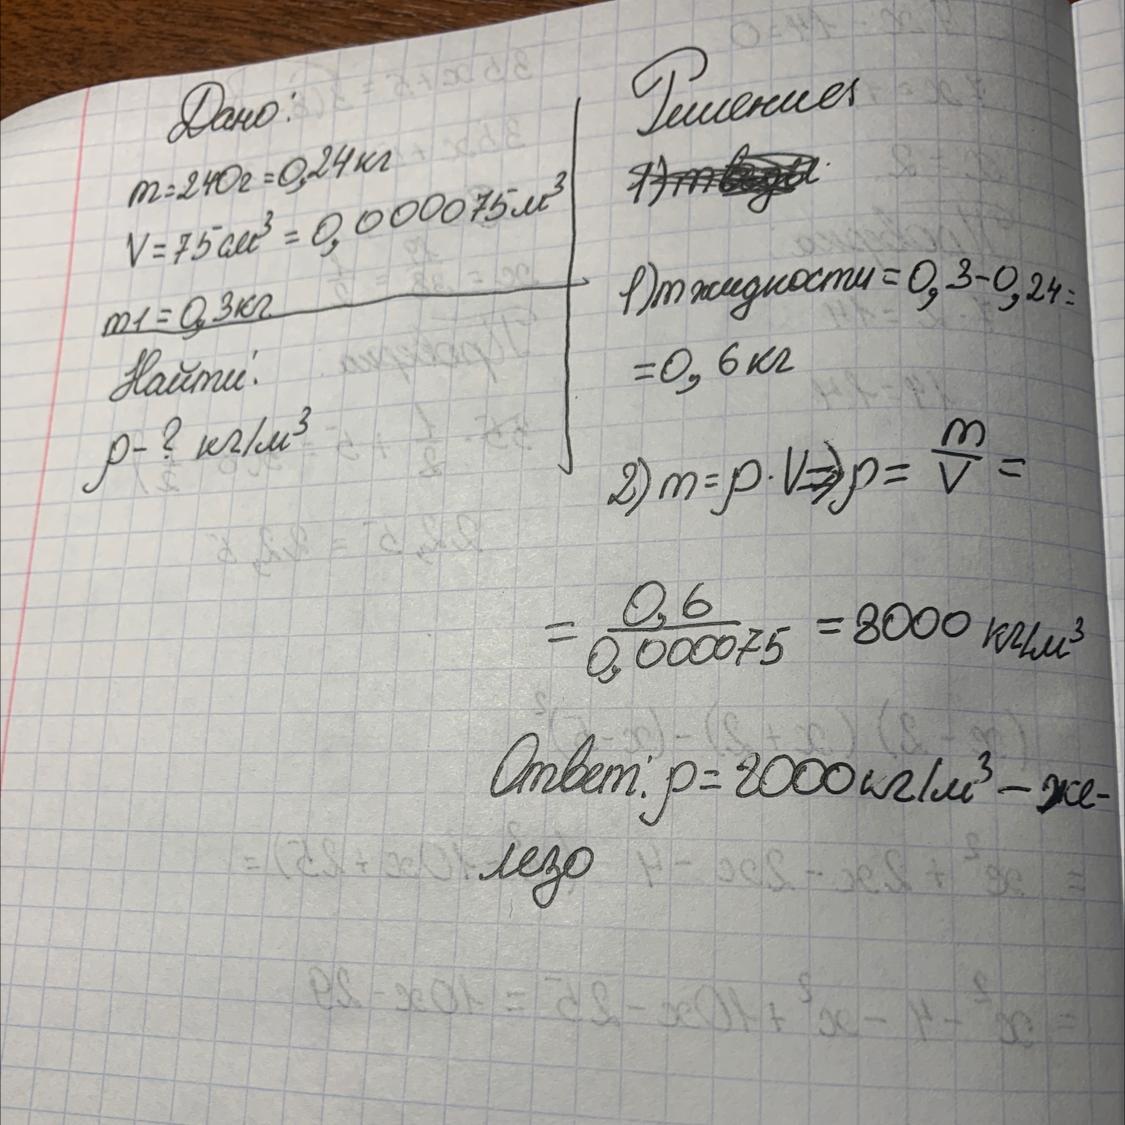 Дано:
m=240г=0,24кг
V=75см³=0,000075м³
m1=0,3кг
Найти:
ρ-? кг/м³
Решение
1)m
1)m жидкости=0,3-0,24=
=0,6кг
2)m=ρ·V⇒ρ=m/V=
=0,6/0,000075=8000 кг/м³
Ответ: ρ=8000кг/м³-же-
лезо